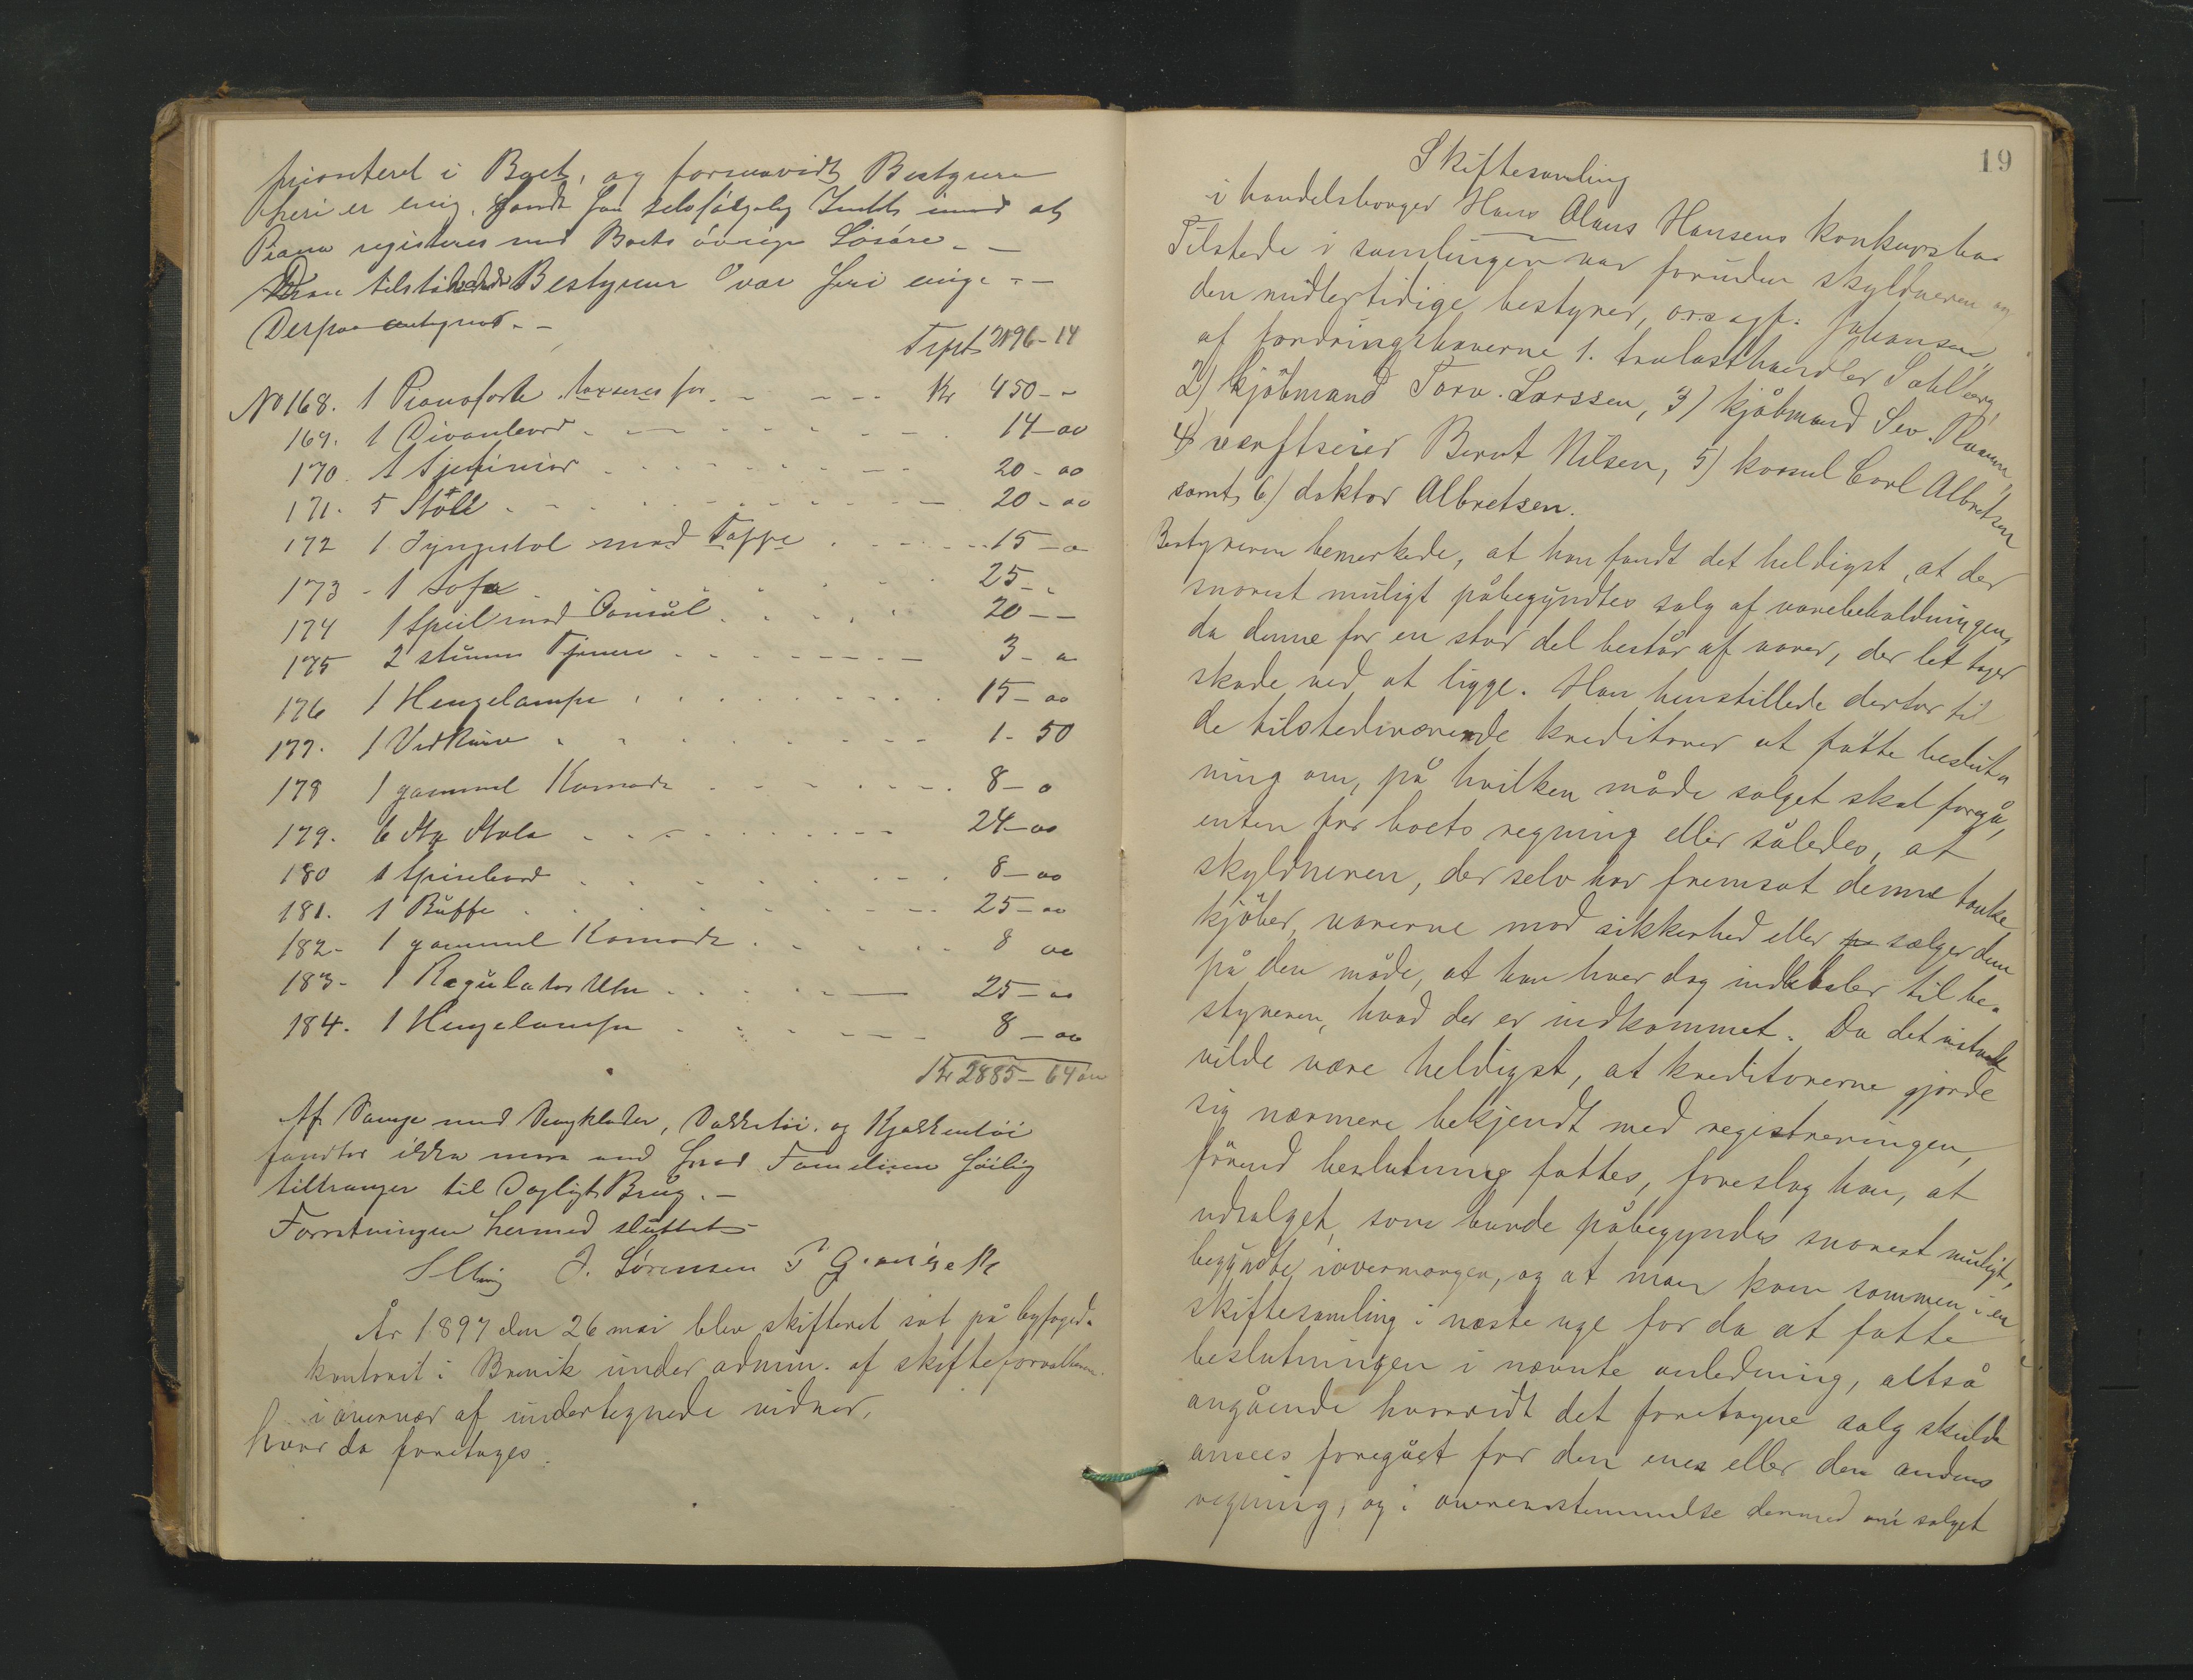 prioriteret i Boet, og forsaavidt Bestyreren
heri er enig, fandt han selvfölgelig Intet imod at
Piano registeres med Boets övrige Lösöre. —
Den tilstædeværende Bestyrer var heri enige. —
Derpaa antegnet. —
Trpt 2196-14
No 168. 1 Pianoforte taxeres for Kr 450--
169. 1 Divanbord 14-00
170. 1 Chifinier 20-00
171. 5 Stöle 20-00
172 1 Gyngestol med Teppe 15-0
173 - 1 Sofa 25--
174 1 Speil med Consul 20--
175 2 stumme Tjenere 3-0
176 1 Hengelampe 15-00
177. 1 Vedkurv 1-50
178 1 gammel Komode 8-0
179. 6 Stk Stole 24-00
180 1 Spisebord 8-00
181. 1 Buffe 25-00
182- 1 gammel Komode 8 00
183- 1 Regulator Uhr 25-00
184. 1 Hengelampe 8-00
Kr 2885-64 öre
Af Senge med Sengklæder, Dækketöi og Kjökkentöi
fandtes ikke mere end hvad Familien höilig
tiltrænger til Dagligt Brug. —
Forretningen hermed sluttet
J. Sörensen
År 1897 den 26 mai blev skifteret sat på byfoged-
kontoret i Brevik under admin. af skifteforvalteren
i overvær af undertegnede vidner,
hvor da foretages.
19
Skiftesamling
i handelsborger Hans Olaus Hansens konkursbo.
Tilstede i samlingen var foruden skyldneren og
den midlertidige bestyrer, ovs. agf. Johansen
af fordringshaverne 1. trælasthandler Dahlberg,
2) kjöbmand Torv. Larssen, 3) kjöbmand Sev.
4) verftseier Bernt Nilsen, 5) konsul Carl Albretsen
samt 6) doktor Albretsen.
Bestyreren bemerkede, at han fandt det heldigst, at der
snarest muligt påbegyndtes salg af varebeholdningen,
da denne for en stor del består af varer, der let tager
skade ved at ligge. Han henstillede derfor til
de tilstedeværende kreditorer at fatte beslut-
ning om, på hvilken måde salget skal foregå,
enten for boets regning eller således, at
skyldneren, der selv har fremsat denne tanke
kjöber varerne mod sikkerhed eller sælger dem
på den måde, at han hver dag indbetaler til be-
styreren, hvad der er indkommet. Da det vistnok
vilde være heldigst, at kreditorerne gjorde
sig nærmere bekjendt med registreringen,
förend beslutning fattes, foreslog han, at
udsalget, som burde påbegyndes snarest muligt,
begyndte iovermorgen, og at man kom sammen i en
skiftesamling i næste uge for da at fatte
beslutningen i nævnte anledning, altså
angående hvorvidt det foretagne salg skulde
ansees foregået for den enes eller den andens
regning, og i overensstemmelse dermed om salget